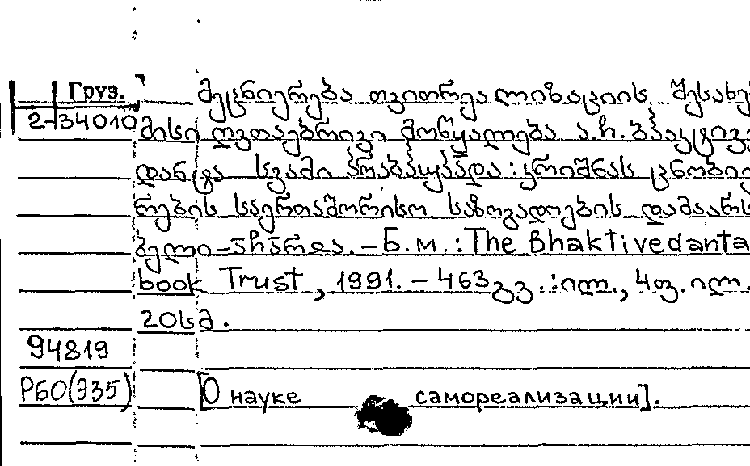 Груз.
2-34010
მეცნიერება თვითრეალიზაციის შესახებ
მისი ღვთაებრივი მოწყალება ა.ჩ. ბჰაკტივე
დანტა სვამი პრაბჰუპადა : კრიშნას ცნობიე
რების საერთაშორისო საზოგადოების დამაარს
ბელი-აჩარია. - Б.м.: The Bhaktivedanta
book Trust, 1991. - 463 გვ. : ილ., 4 ფ. ილ.
20სმ.
94819
РБО(935)
[О науке самореализации].